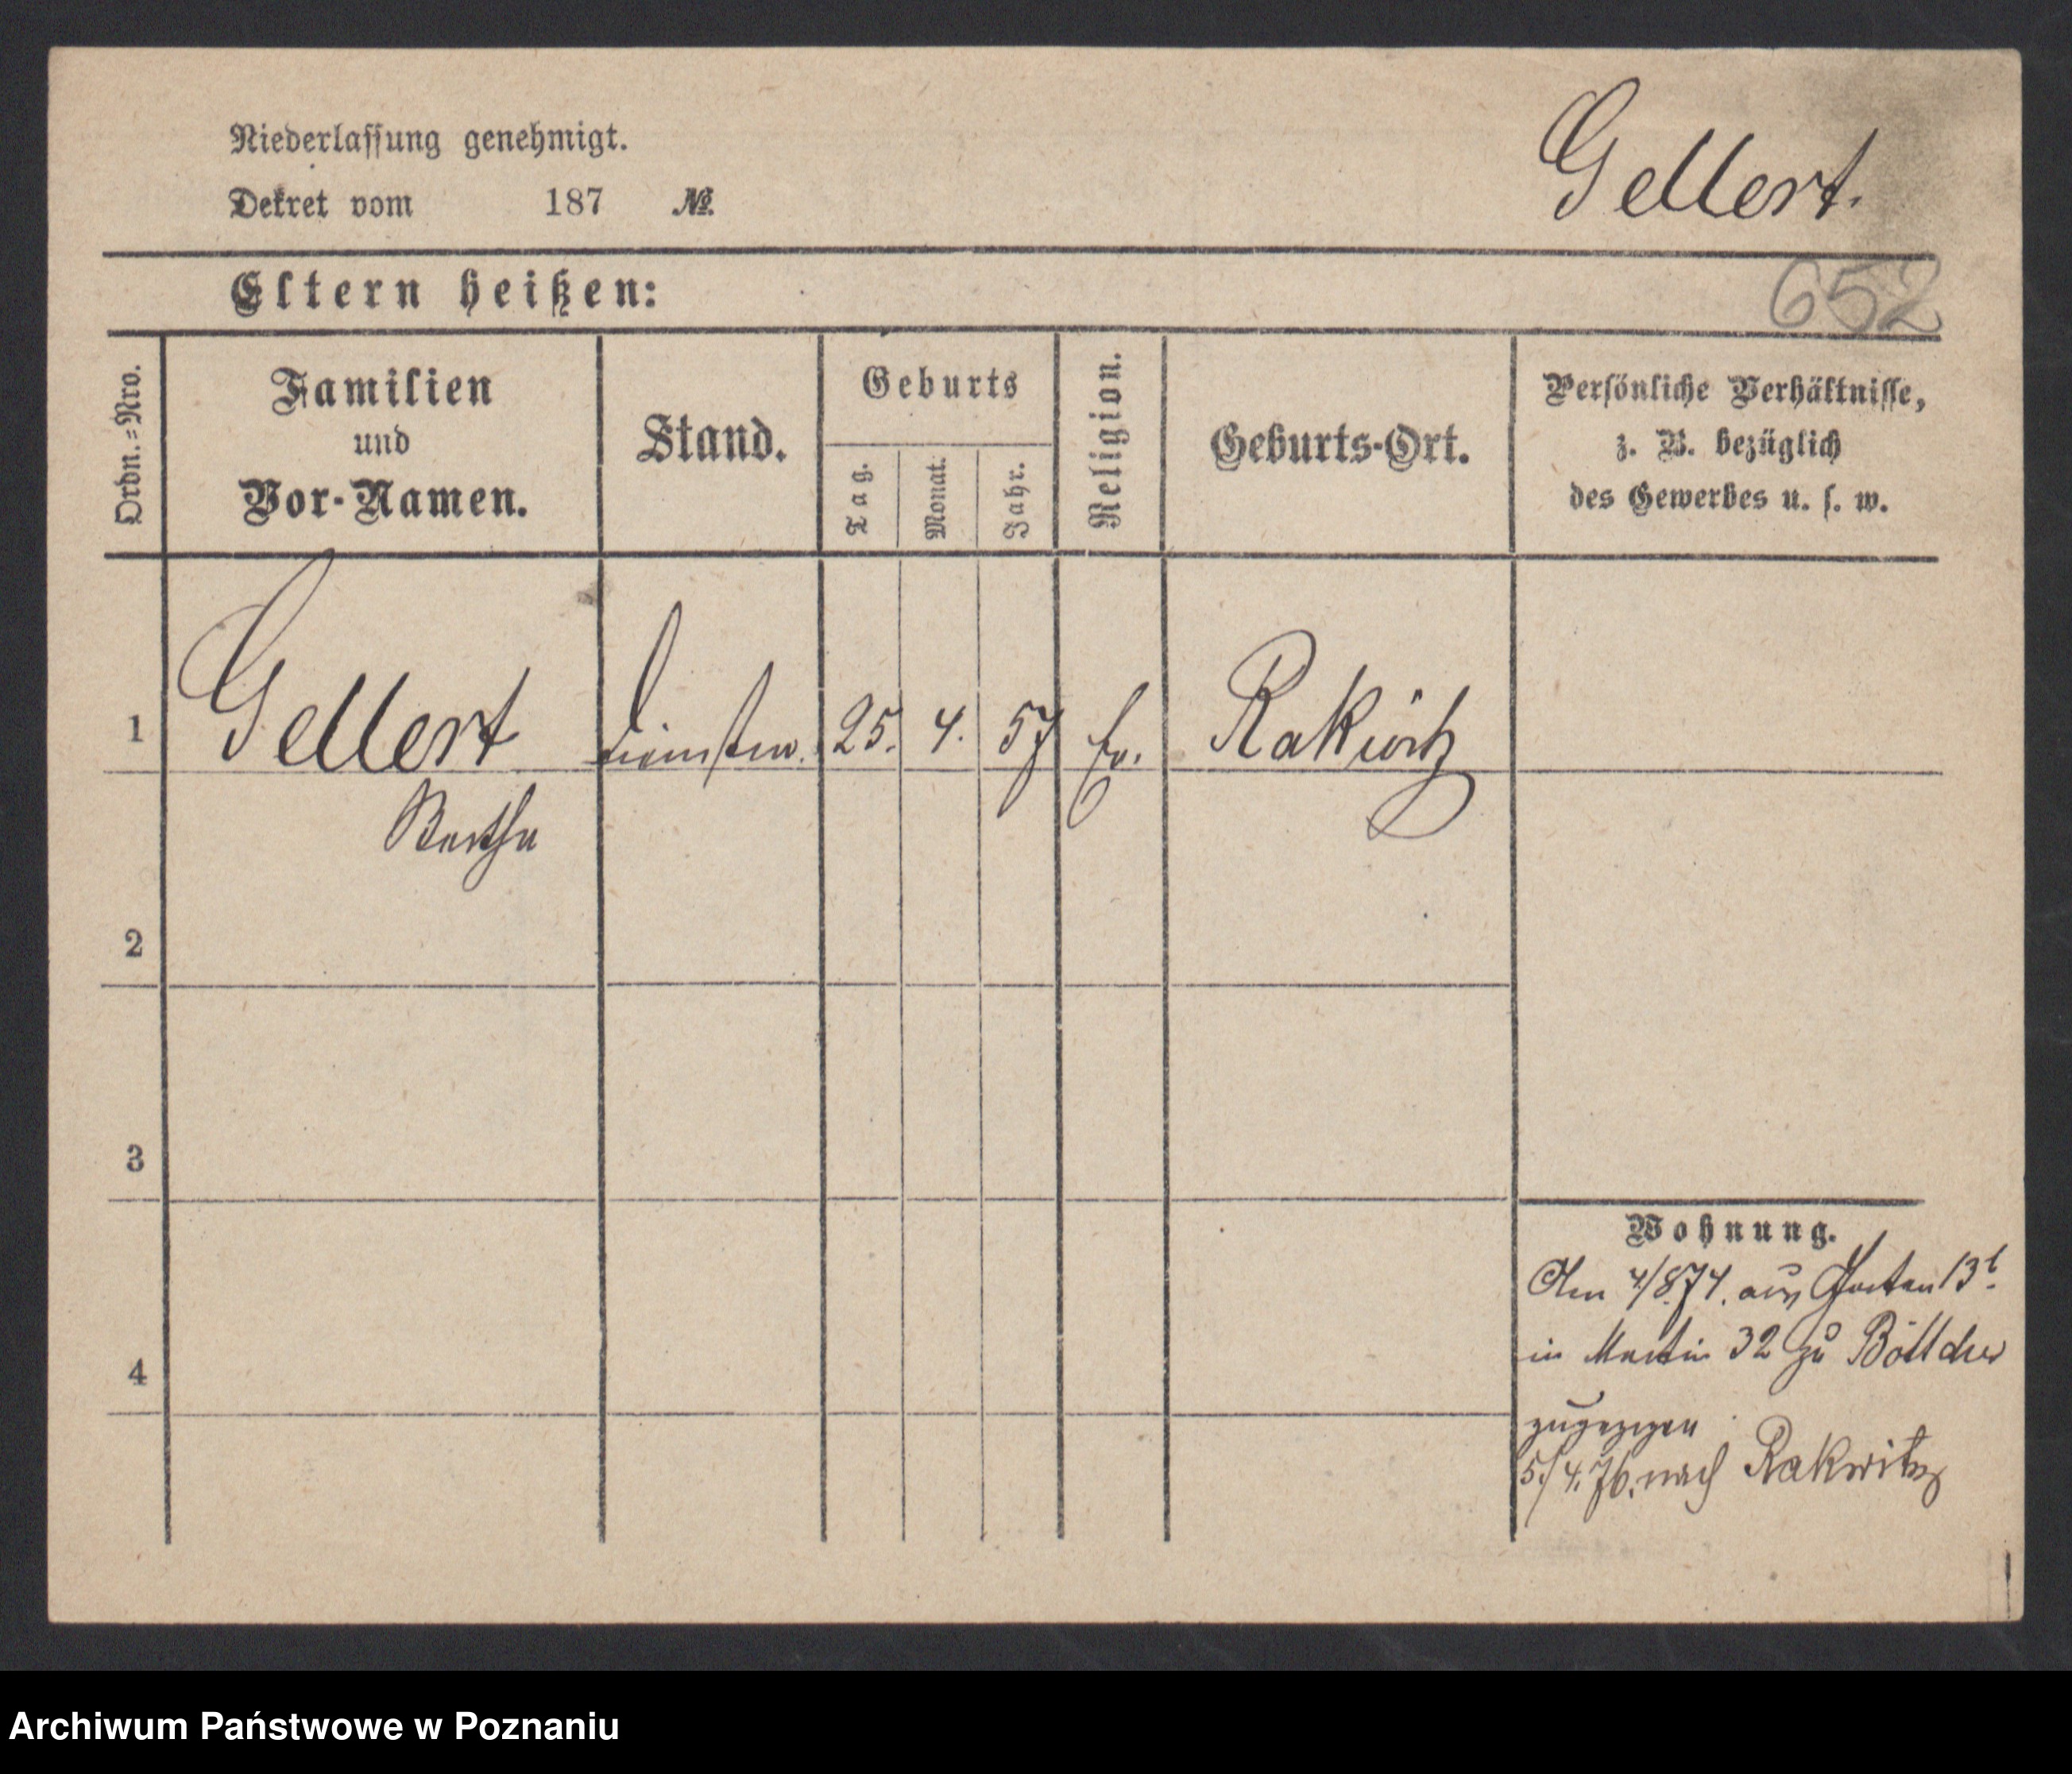 Niederlassung genehmigt.
Dekret vom 187 №
Gellert.
Eltern heißen:
652
Ordn.=Nro.
Familien
und
Vor-Namen.
Stand.
Geburts
Tag.
Monat.
Jahr.
Religion.
Geburts-Ort.
Persönliche Verhältnisse,
z. B. bezüglich
des Gewerbes u. s. w.
1 Gellert 25. 4. 57 ev. Rakwitz
Bertha
2
3
4
Wohnung.
Am 4/874. aus
in Martin 32 zu Böttcher
zugezogen
5/4.76. nach Rakwitz
Archiwum Państwowe w Poznaniu